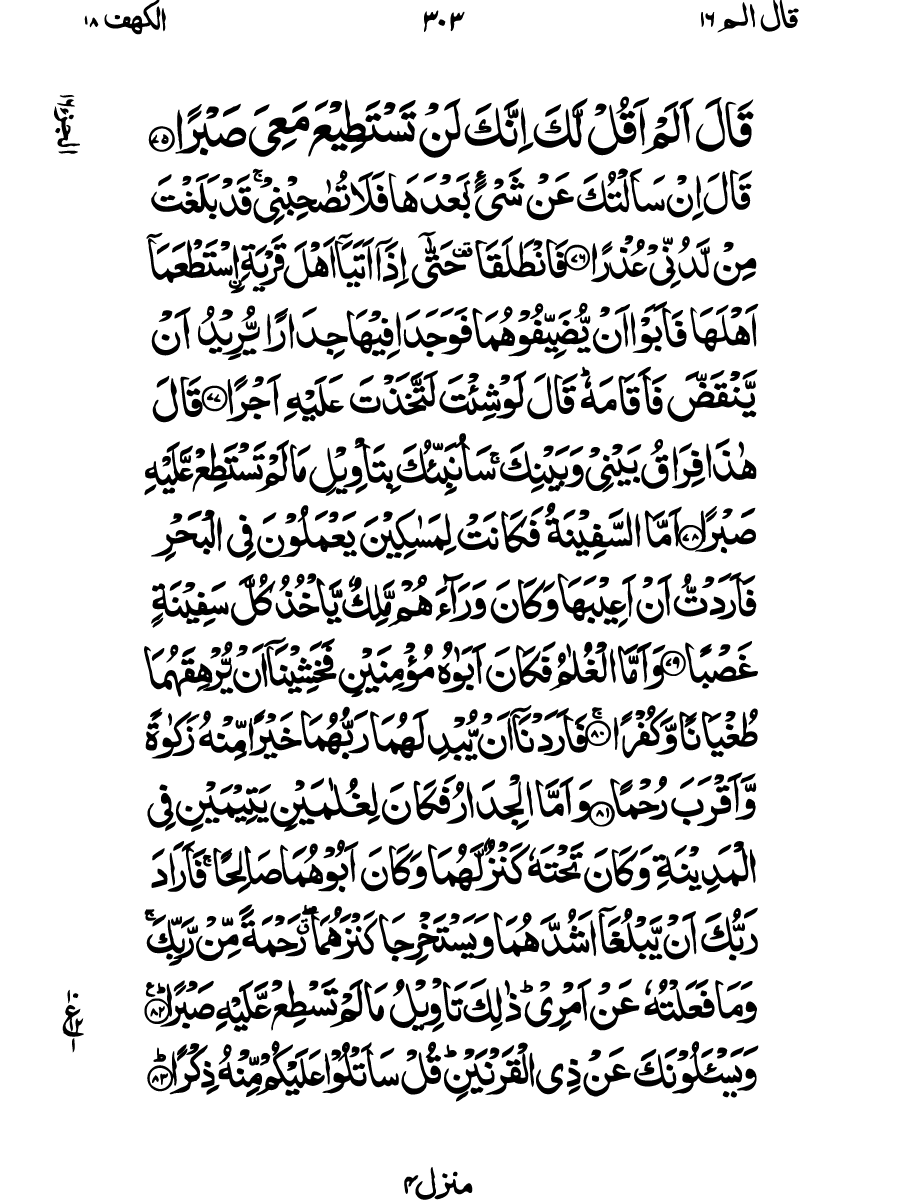 قال الم ١٦
٣٠٣
الكهف ١٨
الجزء ١٦
قَالَ اَلَمْ اَقُلْ لَّكَ اِنَّكَ لَنْ تَسْتَطِيْعَ مَعِيَ صَبْرًا ﴿٧٥﴾
قَالَ اِنْ سَاَلْتُكَ عَنْ شَىْءٍۭ بَعْدَهَا فَلَا تُصٰحِبْنِىْ ۚ قَدْ بَلَغْتَ
مِنْ لَّدُنِّىْ عُذْرًا ﴿٧٦﴾ فَانْطَلَقَا ۥ حَتّٰٓى اِذَآ اَتَيَآ اَهْلَ قَرْيَةِ ِۨاسْتَطْعَمَآ
اَهْلَهَا فَاَبَوْا اَنْ يُّضَيِّفُوْهُمَا فَوَجَدَا فِيْهَا جِدَارًا يُّرِيْدُ اَنْ
يَّنْقَضَّ فَاَقَامَهٗ ؕ قَالَ لَوْ شِئْتَ لَتَّخَذْتَ عَلَيْهِ اَجْرًا ﴿٧٧﴾ قَالَ
هٰذَا فِرَاقُ بَيْنِىْ وَبَيْنِكَ ۚ سَاُنَبِّئُكَ بِتَاْوِيْلِ مَا لَمْ تَسْتَطِعْ عَّلَيْهِ
صَبْرًا ﴿٧٨﴾ اَمَّا السَّفِيْنَةُ فَكَانَتْ لِمَسٰكِيْنَ يَعْمَلُوْنَ فِى الْبَحْرِ
فَاَرَدْتُّ اَنْ اَعِيْبَهَا وَكَانَ وَرَآءَهُمْ مَّلِكٌ يَّاْخُذُ كُلَّ سَفِيْنَةٍ
غَصْبًا ﴿٧٩﴾ وَاَمَّا الْغُلٰمُ فَكَانَ اَبَوٰهُ مُؤْمِنَيْنِ فَخَشِيْنَآ اَنْ يُّرْهِقَهُمَا
طُغْيَانًا وَّكُفْرًا ۚ ﴿٨٠﴾ فَاَرَدْنَآ اَنْ يُّبْدِلَهُمَا رَبُّهُمَا خَيْرًا مِّنْهُ زَكٰوةً
وَّاَقْرَبَ رُحْمًا ﴿٨١﴾ وَاَمَّا الْجِدَارُ فَكَانَ لِغُلٰمَيْنِ يَتِيْمَيْنِ فِى
الْمَدِيْنَةِ وَكَانَ تَحْتَهٗ كَنْزٌ لَّهُمَا وَكَانَ اَبُوْهُمَا صَالِحًا ۚ فَاَرَادَ
رَبُّكَ اَنْ يَّبْلُغَآ اَشُدَّهُمَا وَيَسْتَخْرِجَا كَنْزَهُمَا ۖ رَحْمَةً مِّنْ رَّبِّكَ ۚ
وَمَا فَعَلْتُهٗ عَنْ اَمْرِىْ ؕ ذٰلِكَ تَاْوِيْلُ مَا لَمْ تَسْطِعْ عَّلَيْهِ صَبْرًا ؕ ﴿٨٢﴾
وَيَسْـَٔلُوْنَكَ عَنْ ذِى الْقَرْنَيْنِ ؕ قُلْ سَاَتْلُوْا عَلَيْكُمْ مِّنْهُ ذِكْرًا ؕ ﴿٨٣﴾
منزل ٤